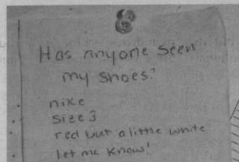 Has anyone seen
my shoes?
nike
size 3
red but a little white
let me know!